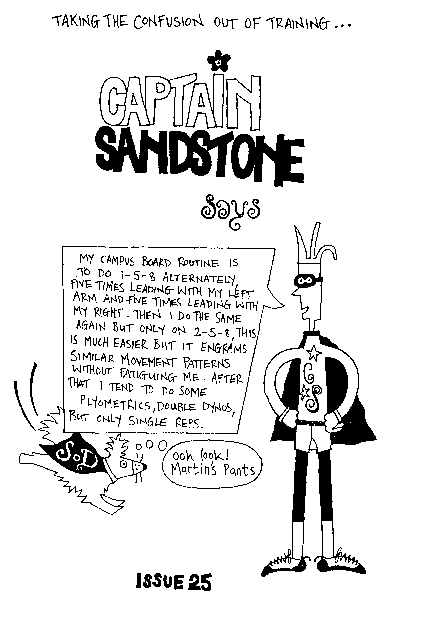 TAKING THE CONFUSION OUT OF TRAINING...
CAPTAIN
SANDSTONE
Says
MY CAMPUS BOARD ROUTINE IS
TO DO 1-5-8 ALTERNATELY,
FIVE TIMES LEADING WITH MY LEFT
ARM AND FIVE TIMES LEADING WITH
MY RIGHT. THEN I DO THE SAME
AGAIN BUT ONLY ON 2-5-8, THIS
IS MUCH EASIER BUT IT ENGRAMS
SIMILAR MOVEMENT PATTERNS
WITHOUT FATIGUING ME. AFTER
THAT I TEND TO DO SOME
PLYOMETRICS, DOUBLE DYNOS,
BUT ONLY SINGLE REPS.
CS
SD
ooh look!
Martin's Pants
ISSUE 25